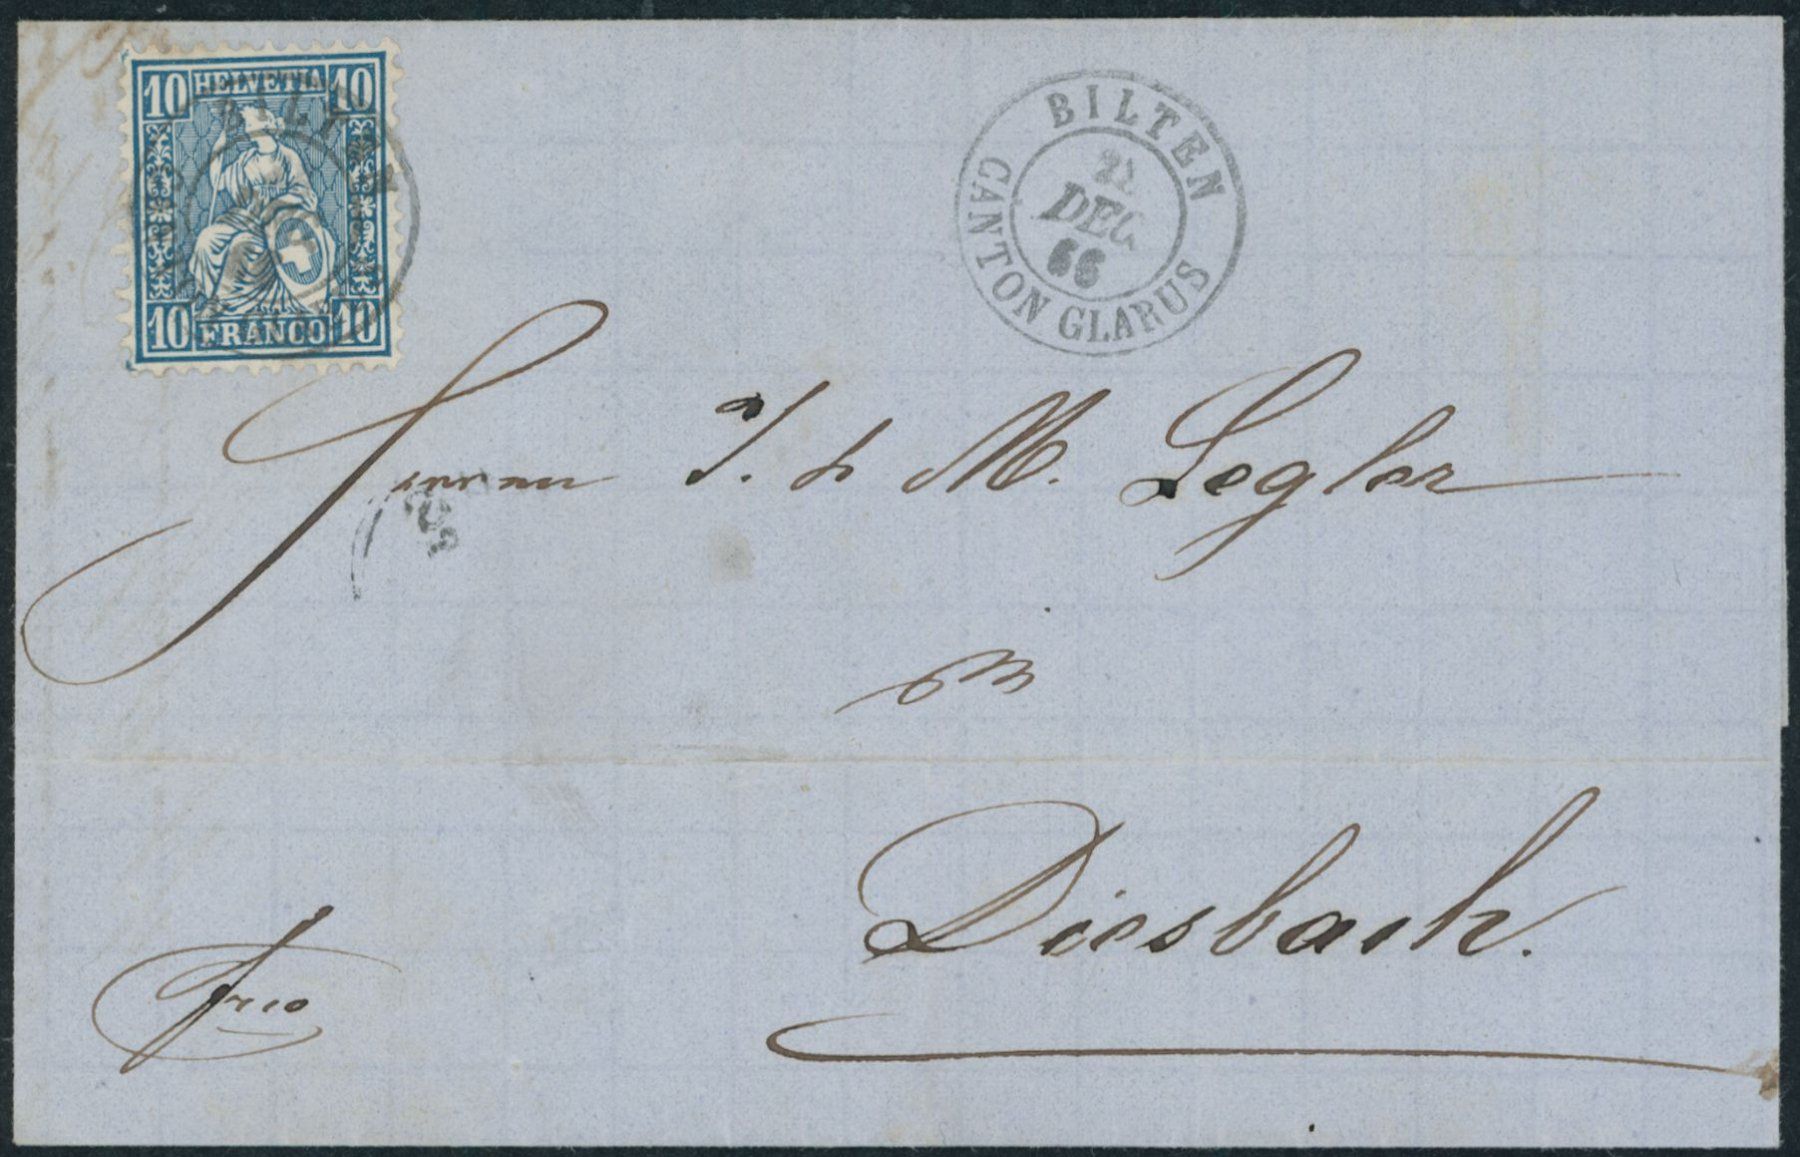 10 HELVETIA 10
BILTEN
10 FRANCO 10
BILTEN
DEC
66
CANTON GLARUS
Herren J. & M. Legler
in
Diesbach.
frco